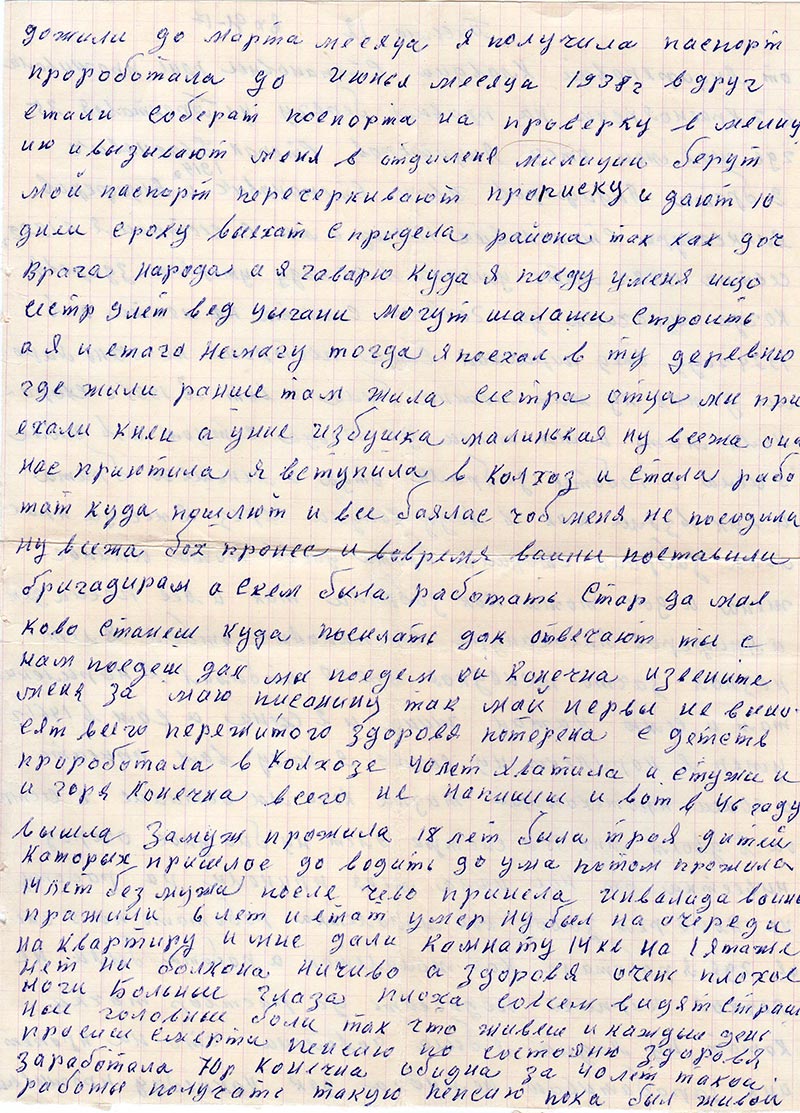 дожили до марта месяца я получила паспорт
проработала до июнья месяца 1938г вдруг
стали соберат поспорта на проверку в мелиц
ию и вызывают меня в отдиления милиции берут
мой паспорт перечеркивают прописку и дают 10
дней сроку выехат с придела района так как доч
врага народа а я гаварю куда я поеду уменя ищо
сестр 9 лет вед цыгани могут шалаши строить
а я и етаго немагу тогда я поехал в ту деревню
где жили раньше там жила сестра отца мы при
ехали кней а уние избушка малинькая ну всежа она
нас приютила я вступила в колхоз и стала рабо
тат куда пошлют и все боялас чоб меня не посодили
ну всежа бох пронес и вовремя ваины поставили
бригадирам а скем была работать стар да мал
ково станеш куда посылать дак отвечают ты с
нам поедеш дак мы поедем ой конечна извените
меня за маю писанину так май нервы не выно
сят всего пережитого здоровя потерена с детств
проработала в колхозе 40 лет хватила и стужи и
и горя конечна всего не напишиш и вот в 46 гаду
вышла замуж прожила 18 лет была троя дитей
каторых пришлос до водить до ума потом прожила
14 лет без мужа после чево принела инвалида воины
пражили 6 лет и етат умер ну был на очереди
на квартиру и мне дали комнату 14 кв на 1 этаже
нет ни болкона ничиво а здоровя очен плохое
ноги больные глаза плоха совсем видят страш
ные головные боли так что живеш и каждый день
просиш смерти пенсию по состояню здоровя
заработала 70р конечна обидна за 40 лет такой
работы получать такую пенсию пока был живой